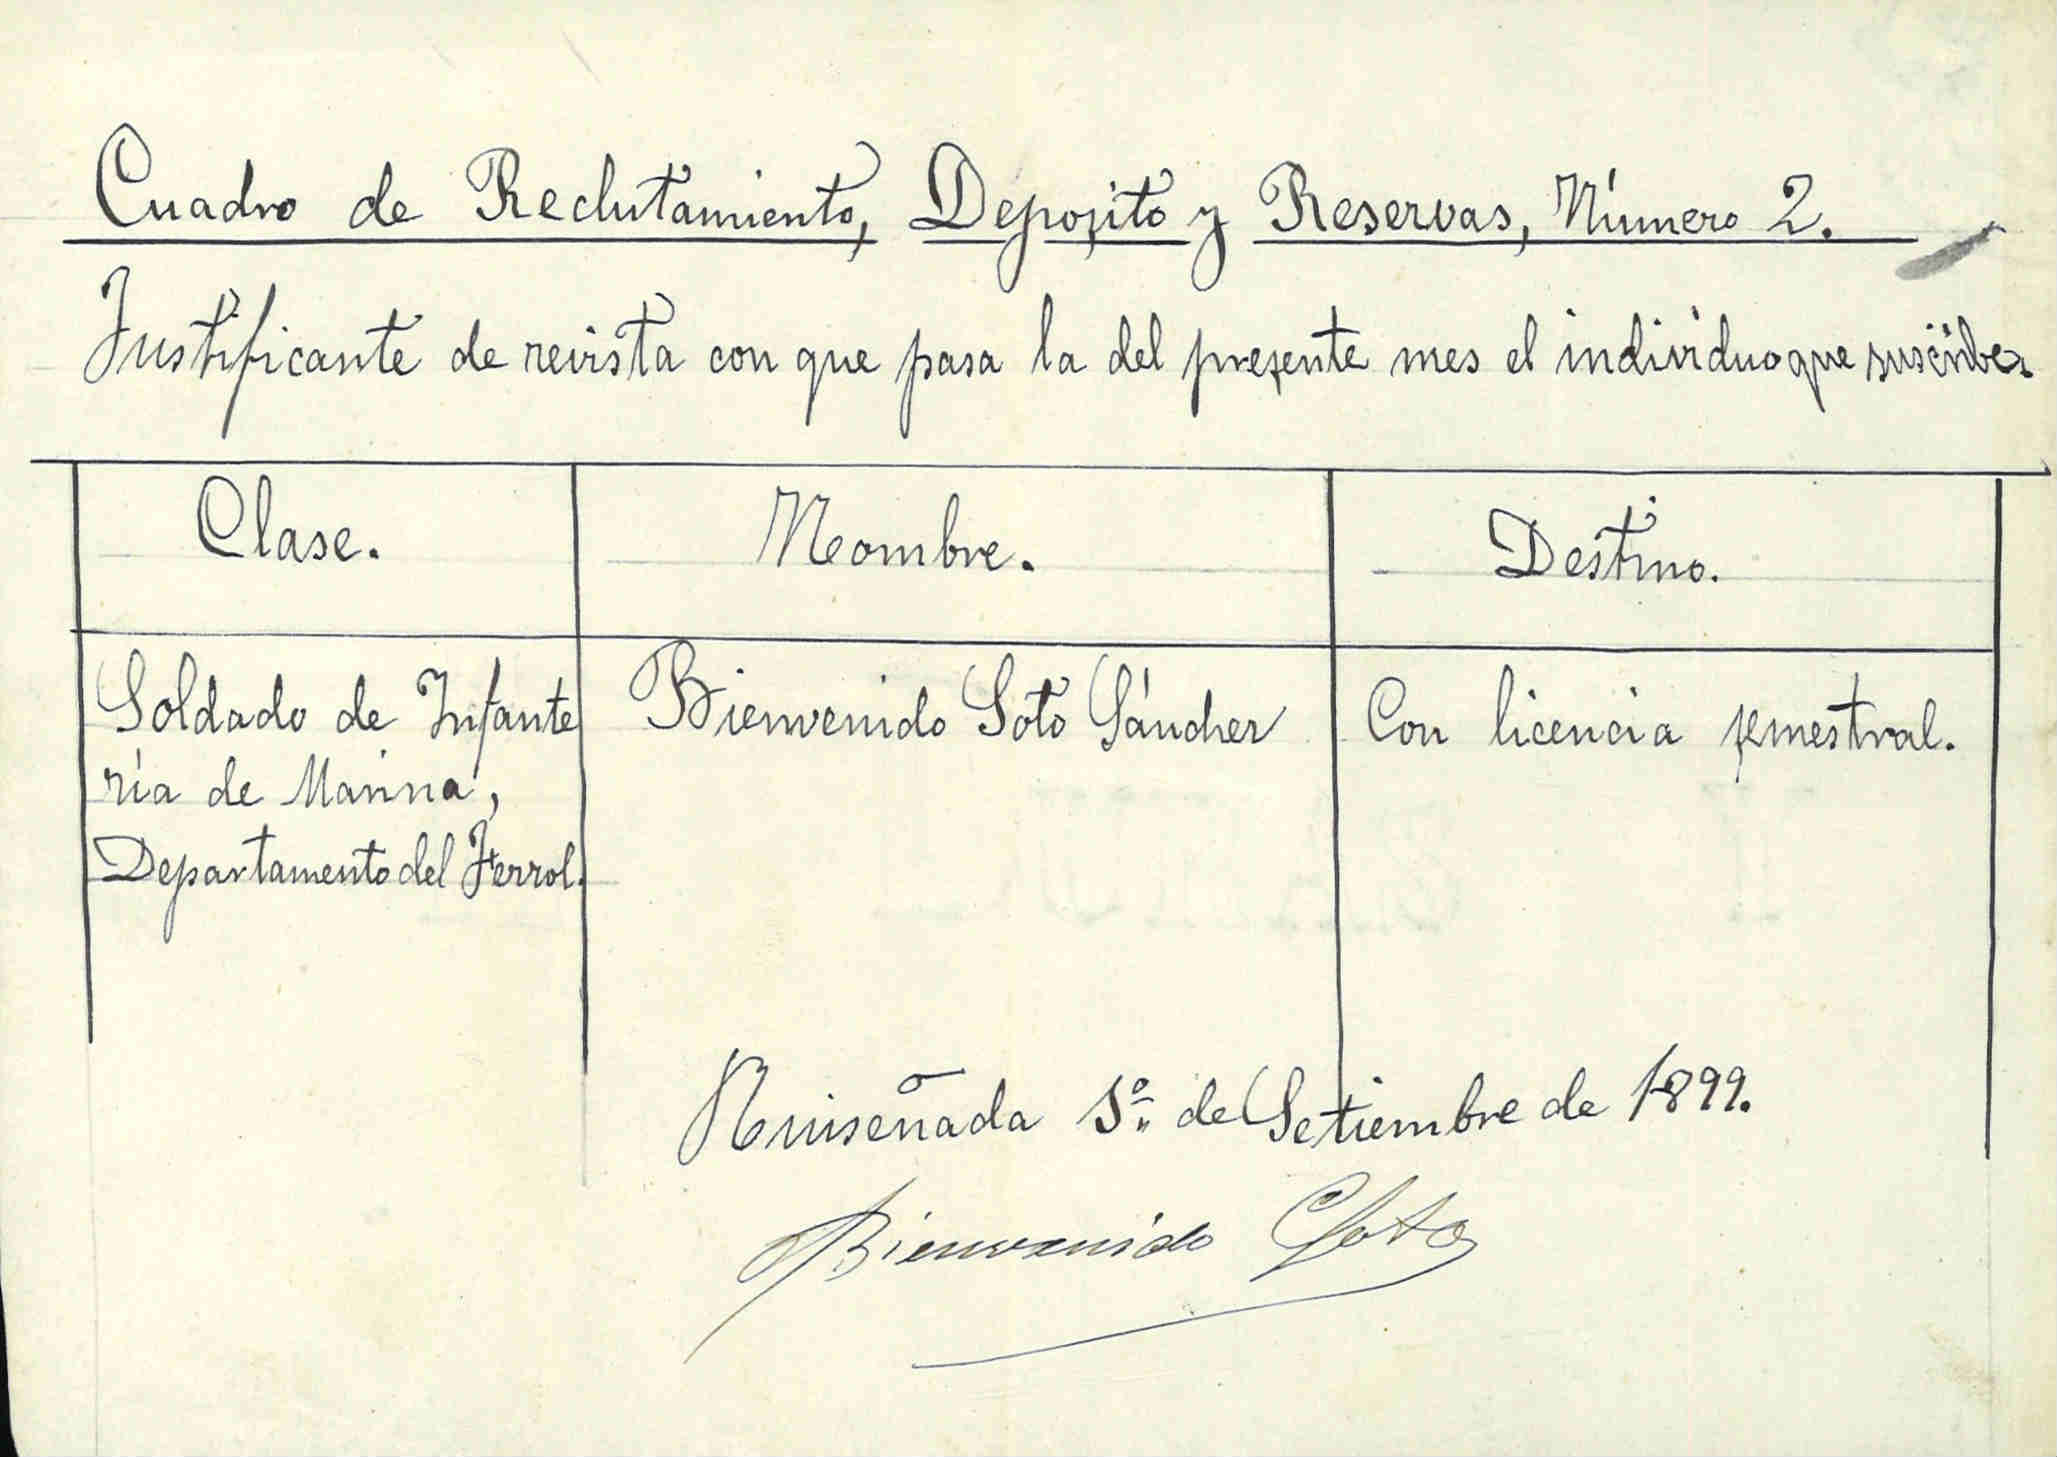 Cuadro de Reclutamiento, Deposito y Reservas, Número 2.
Justificante de revista con que pasa la del presente mes el individuo que suscribe.
Clase. Nombre. Destino.
Soldado de Infante Bienvenido Soto Sánchez Con licencia semestral.
ría de Marina,
Departamento del Ferrol.
Ruiseñada 1º de Setiembre de 1899.
Bienvenido Soto